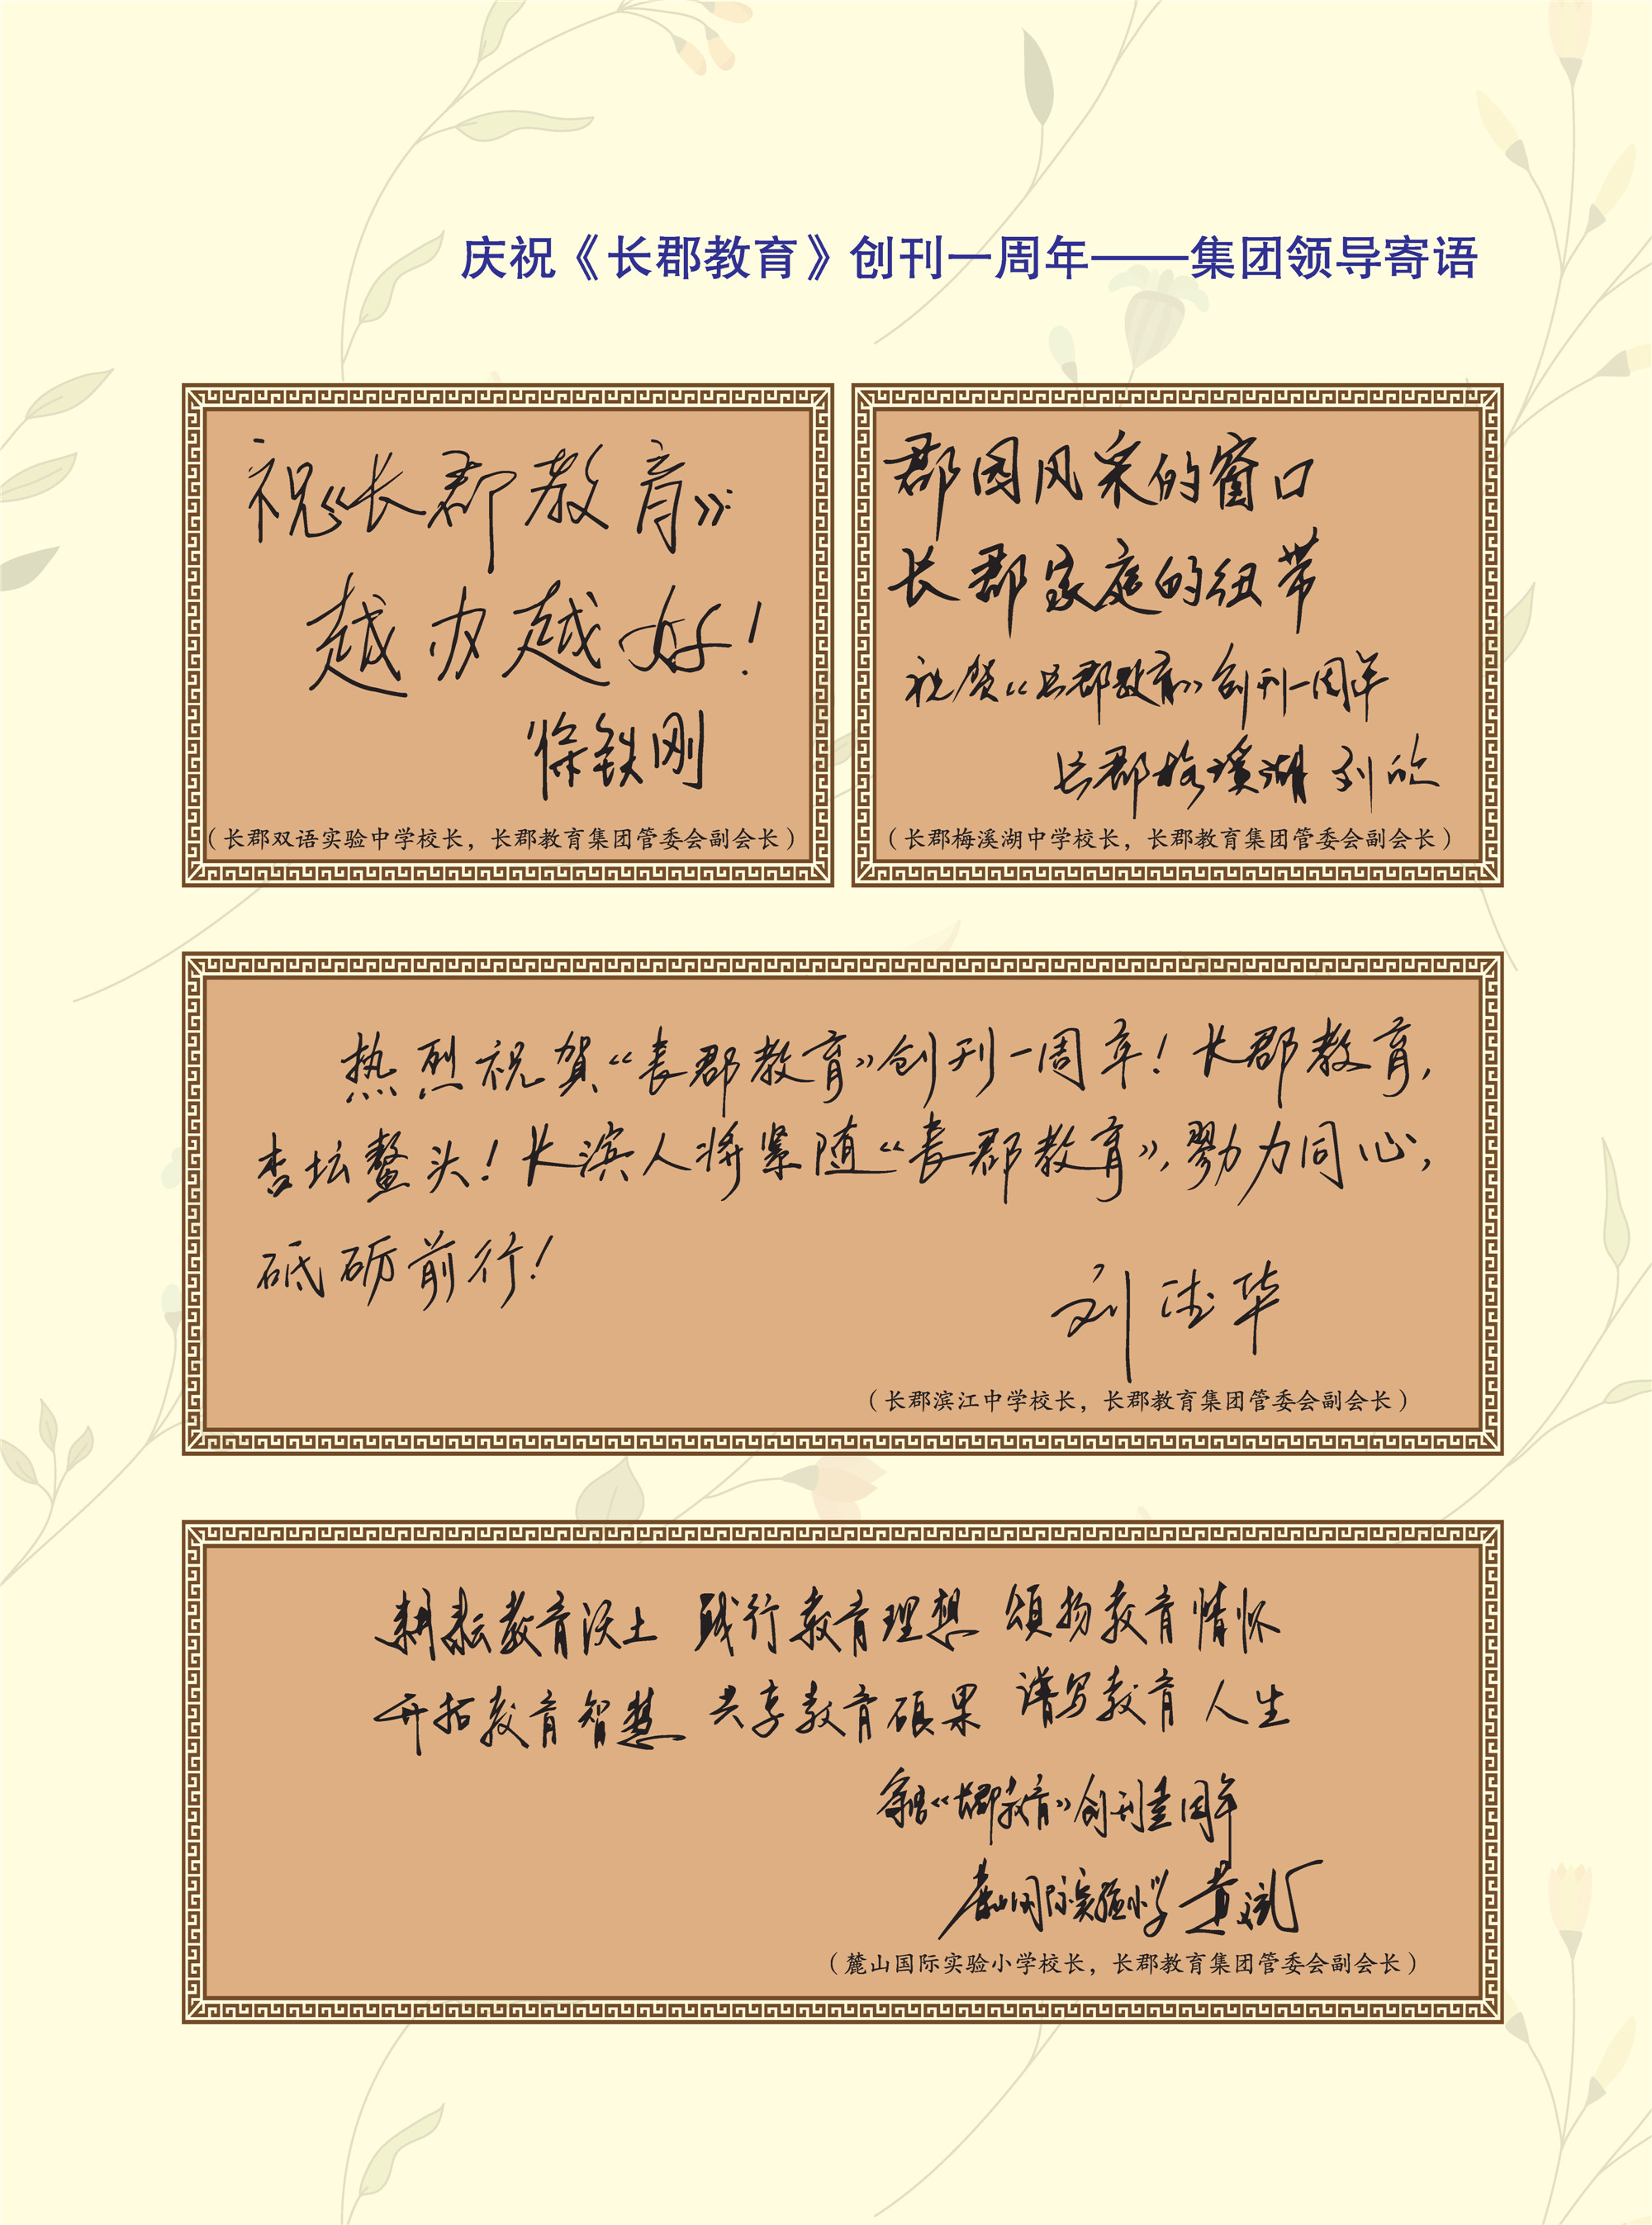 庆祝《长郡教育》创刊一周年——集团领导寄语
祝《长郡教育》
越办越好！
徐铁刚
（长郡双语实验中学校长，长郡教育集团管委会副会长）
郡园风采的窗口
长郡家庭的纽带
祝贺《长郡教育》创刊一周年
长郡梅溪湖 刘欣
（长郡梅溪湖中学校长，长郡教育集团管委会副会长）
热烈祝贺《長郡教育》创刊一周年！长郡教育，
杏坛鳌头！长滨人将紧随《長郡教育》，勠力同心，
砥砺前行！
刘德华
（长郡滨江中学校长，长郡教育集团管委会副会长）
耕耘教育沃土 践行教育理想 颂扬教育情怀
开拓教育智慧 共享教育硕果 谱写教育人生
寄语《长郡教育》创刊壹周年
麓山国际实验小学 黄斌
（麓山国际实验小学校长，长郡教育集团管委会副会长）